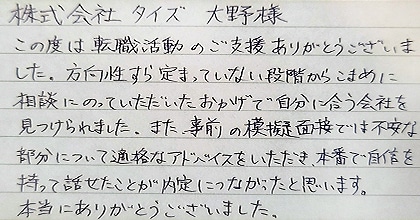 株式会社 タイズ 大野様
この度は転職活動のご支援ありがとうございま
した。方向性すら定まっていない段階からこまめに
相談にのっていただいたおかげで自分に合う会社を
見つけられました。また、事前の模擬面接では不安な
部分について適格なアドバイスをいただき、本番で自信を
持って話せたことが内定につながったと思います。
本当にありがとうございました。